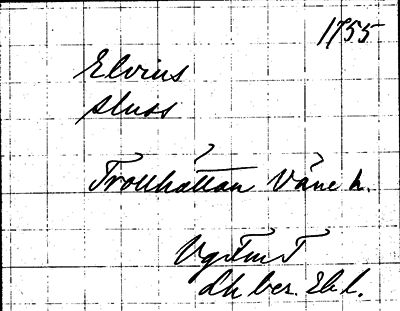 1755
Elvius
sluss
Trollhättan Väne h.
VgFmT
dh ber. Ebl.